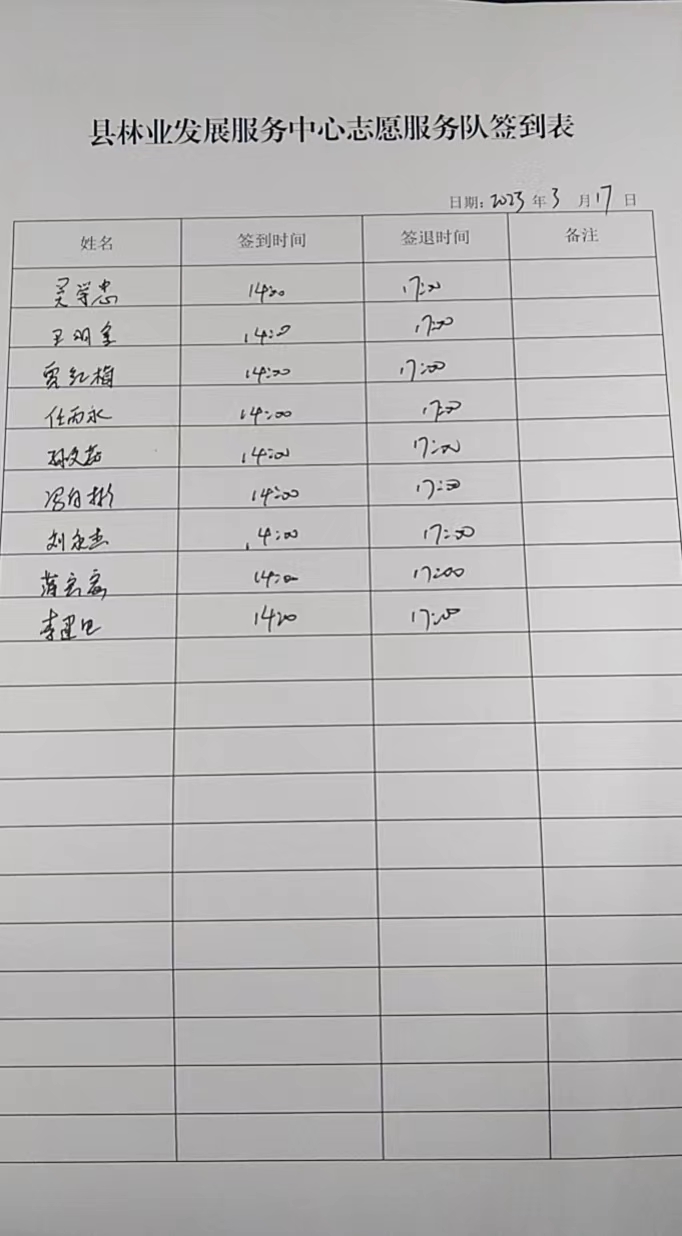 县林业发展服务中心志愿服务队签到表
日期：2023年3月17日
姓名 签到时间 签退时间 备注
吴学忠 14:00 17:00
14:00 17:00
贾红梅 14:00 17:00
任丙永 14:00 17:00
孙文茹 14:00 17:00
冯自彬 14:00 17:00
刘永杰 14:00 17:00
14:00 17:00
14:00 17:00